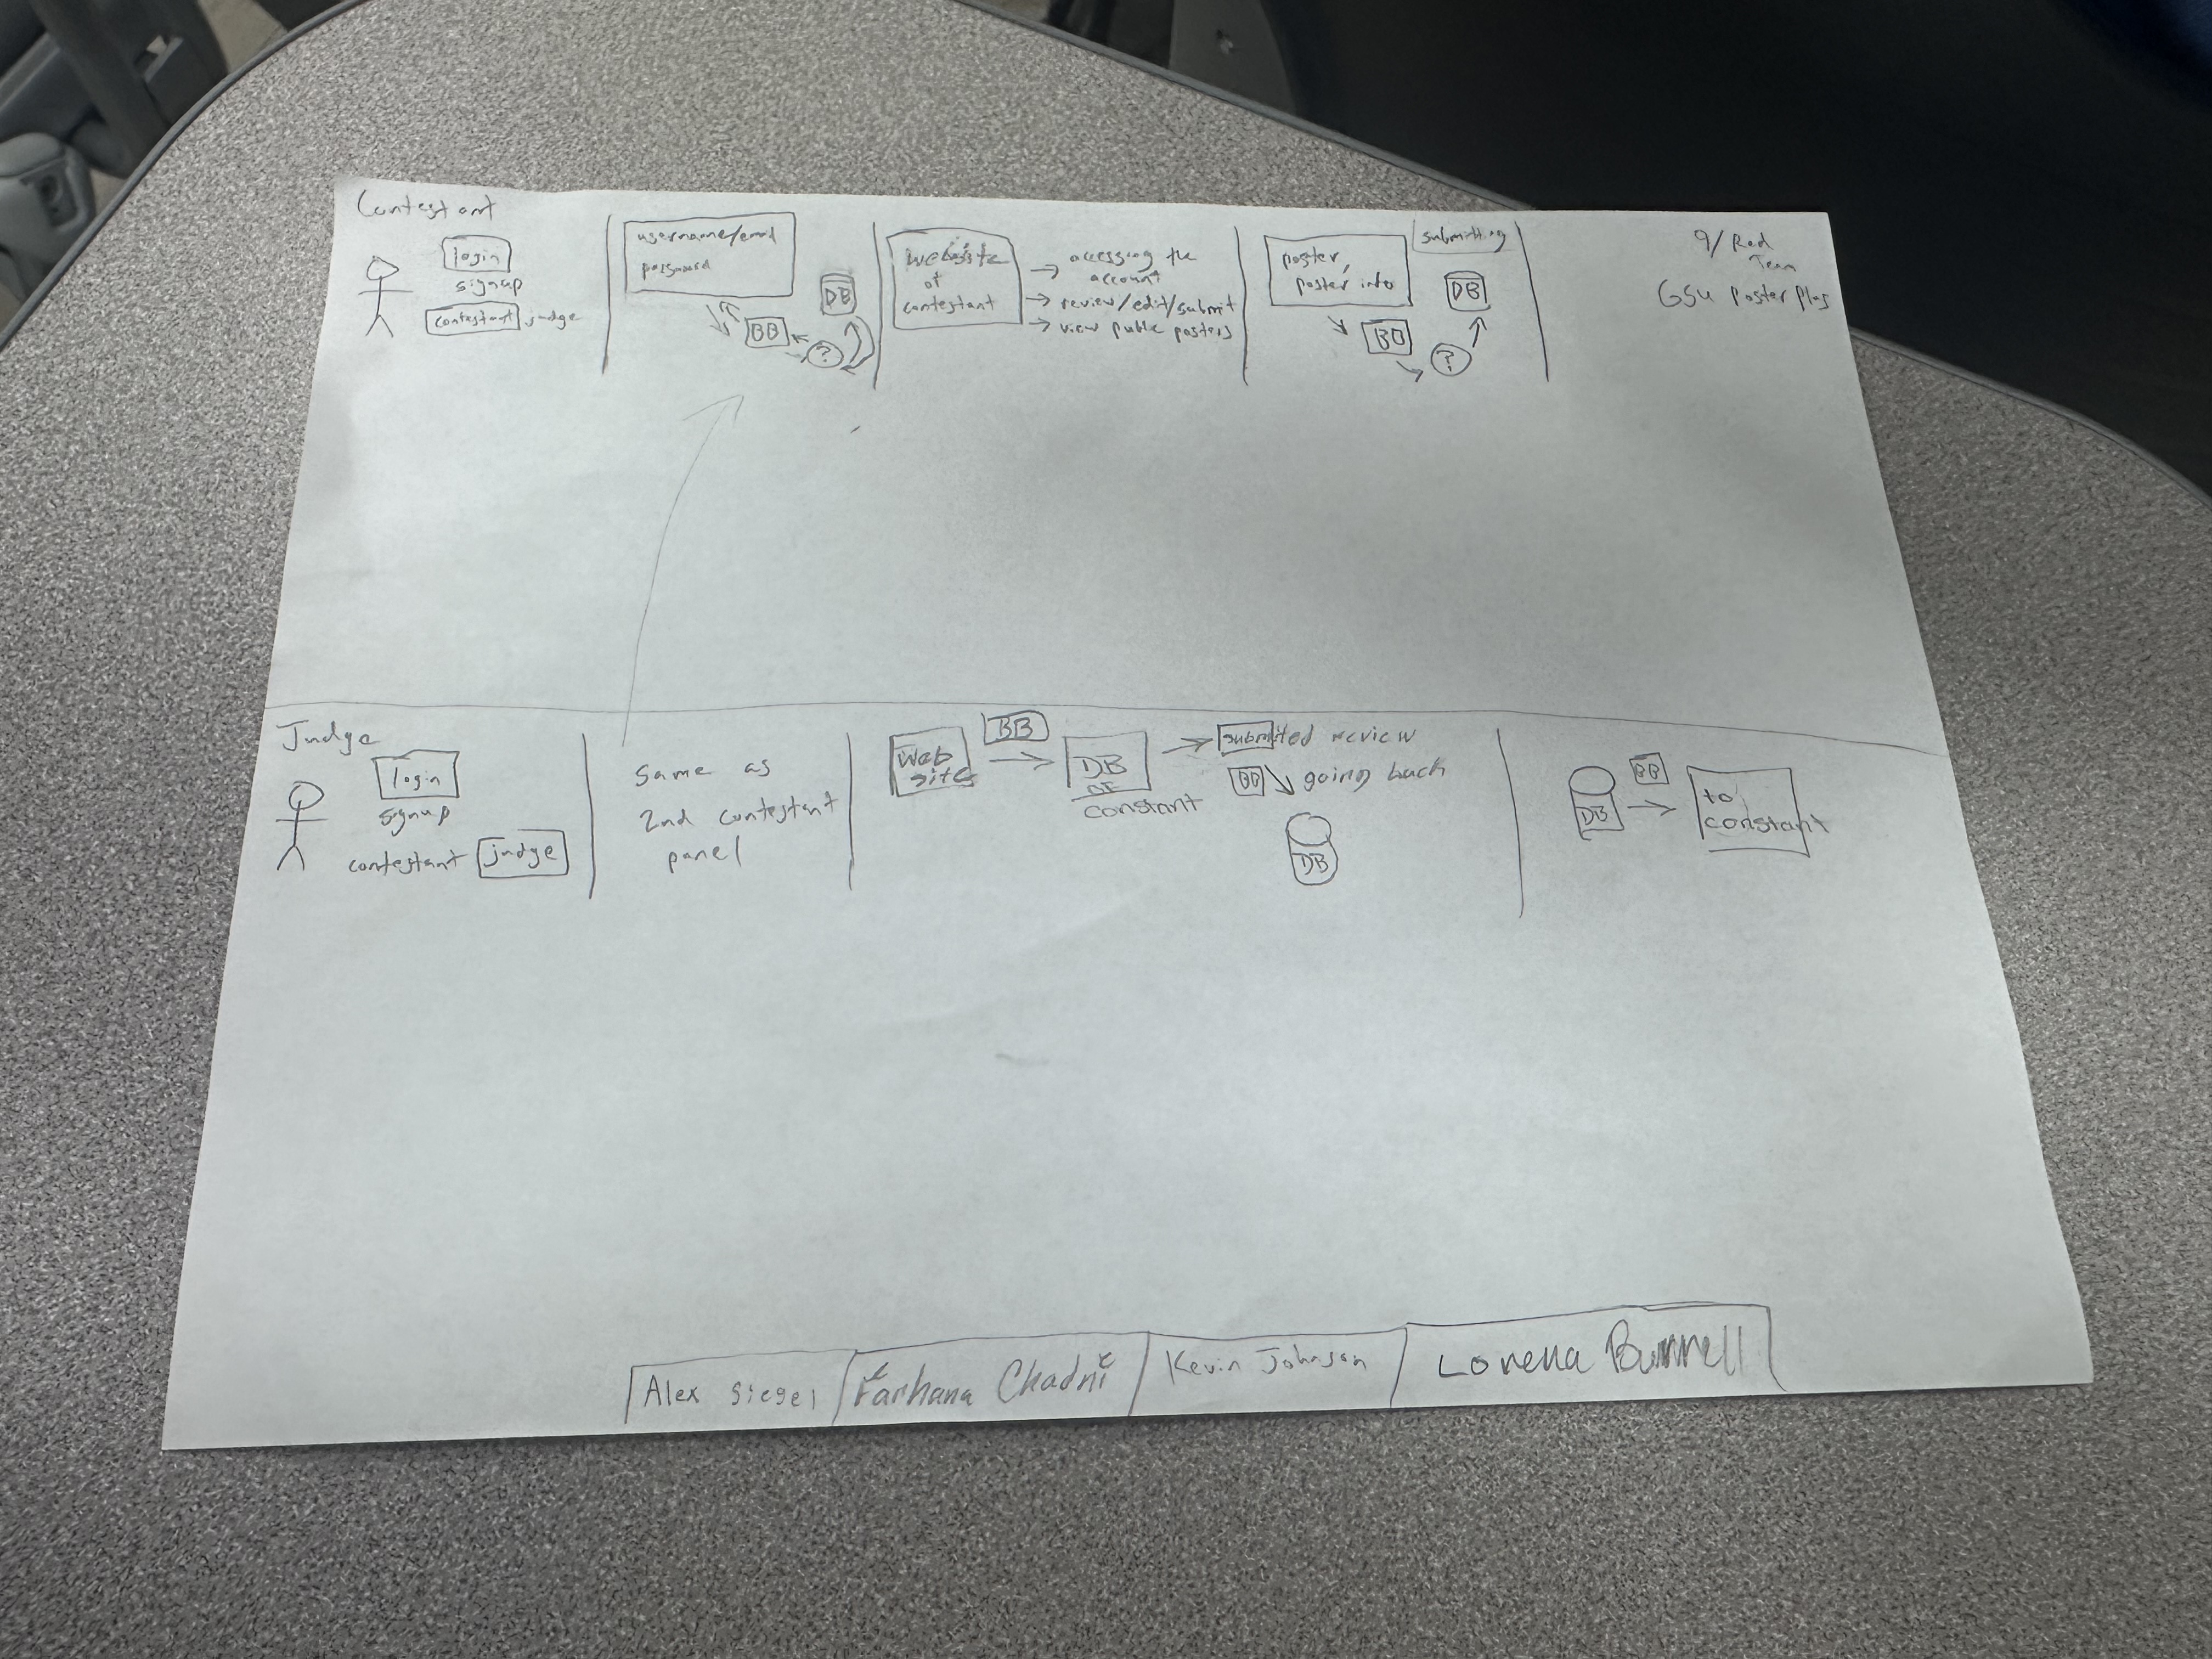 Contestant
login
signup
contestant judge
username/email
password
BB
?
DB
Website
of
contestant
→ accessing the
account
→ review/edit/submit
→ view public posters
submitting
poster,
poster info
BB
?
DB
9/Red
Team
GSU Poster Plus
Judge
login
signup
contestant judge
Same as
2nd contestant
panel
Web
site
BB
→
DB
of
constant
→ submitted review
BB
going back
DB
DB
BB
→
to
constant
Alex Siegel
Farhana Chadni
Kevin Johnson
Lorena Burrell